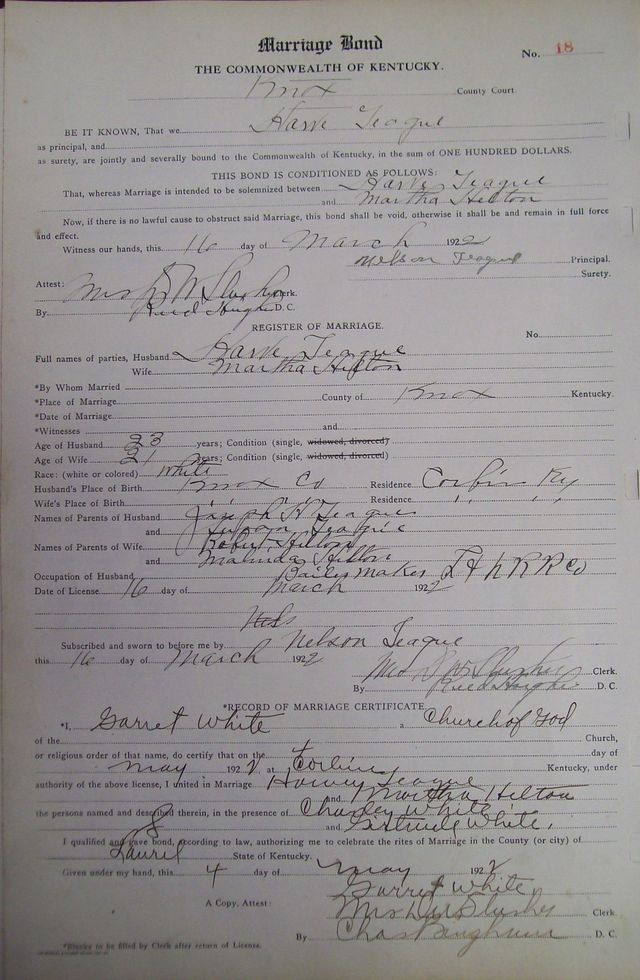 Marriage Bond
No. 18
THE COMMONWEALTH OF KENTUCKY.
Knox County Court
BE IT KNOWN, That we Harve Teague
as principal, and
as surety, are jointly and severally bound to the Commonwealth of Kentucky, in the sum of ONE HUNDRED DOLLARS.
THIS BOND IS CONDITIONED AS FOLLOWS:
That, whereas Marriage is intended to be solemnized between Harve Teague
and Martha Hilton
Now, if there is no lawful cause to obstruct said Marriage, this bond shall be void, otherwise it shall be and remain in full force
and effect.
Witness our hands, this 16 day of March 1922
Nelson Teague Principal.
Surety.
Attest:
Mrs D W Slusher Clerk.
By Reed Hughes D. C.
REGISTER OF MARRIAGE.
No.
Full names of parties, Husband Harve Teague
Wife Martha Hilton
*By Whom Married
*Place of Marriage County of Knox Kentucky.
*Date of Marriage
*Witnesses and
Age of Husband 23 years; Condition (single, widowed, divorced)
Age of Wife 21 years; Condition (single, widowed, divorced)
Race: (white or colored) White
Husband's Place of Birth Knox Co Residence Corbin Ky
Wife's Place of Birth " " Residence " "
Names of Parents of Husband Joseph H Teague
and Teague
Names of Parents of Wife Robert Hilton
and Malinda Hilton
Occupation of Husband Boilermaker L & N R R Co
Date of License 16 day of March 1922
Subscribed and sworn to before me by Nelson Teague
this 16 day of March 1922
Mrs D W Slusher Clerk.
By Reed Hughes D. C.
*RECORD OF MARRIAGE CERTIFICATE
*I, Garret White a Church of God
of the Church,
or religious order of that name, do certify that on the 4 day of
May 1922 at Corbin Kentucky, under
authority of the above license, I united in Marriage Harvey Teague
and Martha Hilton
the persons named and described therein, in the presence of Charley White
and Gertrude White.
I qualified and gave bond, according to law, authorizing me to celebrate the rites of Marriage in the County (or city) of
Laurel State of Kentucky.
Given under my hand, this 4 day of May 1922
Garret White
A Copy, Attest: Mrs D W Slusher Clerk
By Chas D. C.
*Blanks to be filled by Clerk after return of License.